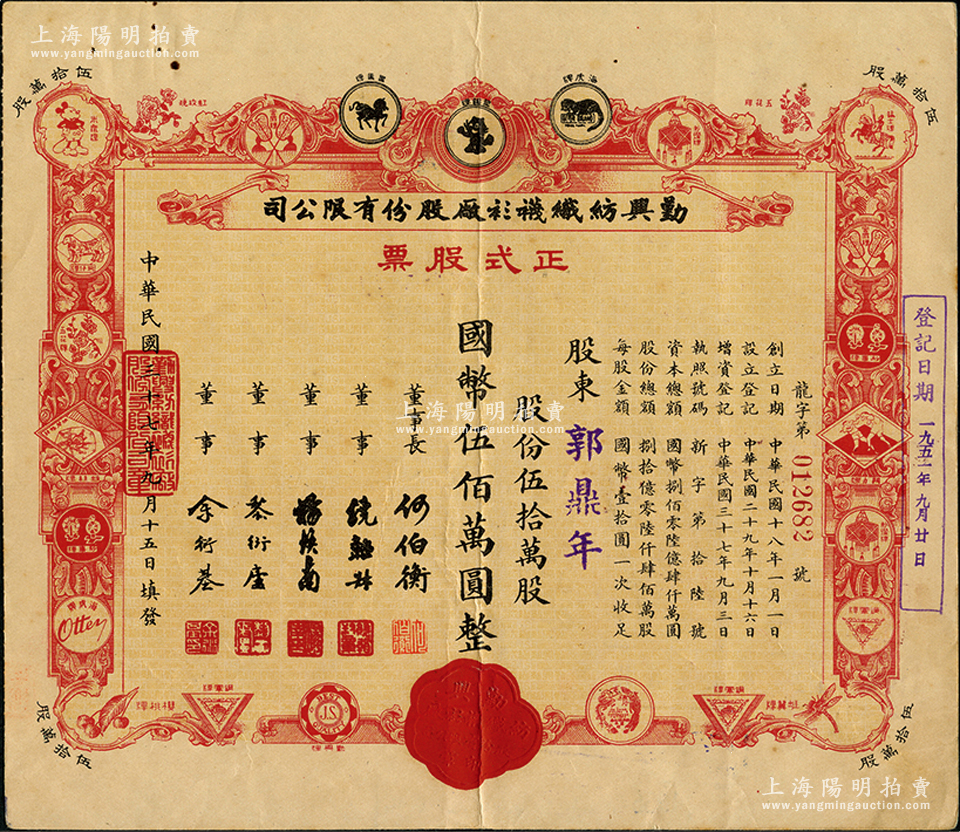 上海陽明拍賣
www.yangmingauction.com
伍拾萬股
伍拾萬股
海虎牌
勤興紡織襪衫廠股份有限公司
正式股票
龍字第 012682 號
創立日期 中華民國十八年一月一日
設立登記 中華民國二十九年十月十六日
增資登記 中華民國三十七年九月三日
執照號碼 新字第拾陸號
資本總額 國幣捌佰零陸億肆仟萬圓
股份總額 捌拾億零陸仟肆佰萬股
每股金額 國幣壹拾圓一次收足
股東 郭鼎年
股份伍拾萬股
國幣伍佰萬圓整
董事長 何伯衡
董事
董事
董事
董事
中華民國三十七年九月十五日填發
登記日期 一九五二年九月廿日
海虎牌
Otter
櫻桃牌
J.S.
伍拾萬股
伍拾萬股
上海陽明拍賣
www.yangmingauction.com